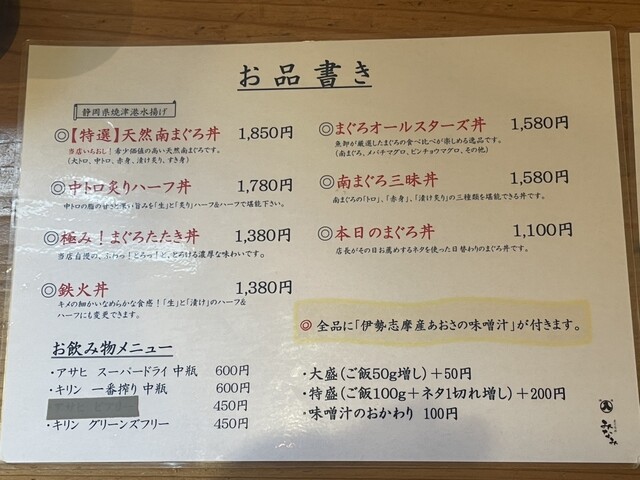 お品書き
静岡県焼津港水揚げ
◎【特選】天然南まぐろ丼 1,850円
当店いちおし!希少価値の高い天然南まぐろです。
(大トロ、中トロ、赤身、漬け炙り、すき身)
◎中トロ炙りハーフ丼 1,780円
中トロの脂の甘さと深い旨みを「生」と「炙り」ハーフ&ハーフで堪能下さい。
◎極み!まぐろたたき丼 1,380円
当店自慢の、ふわっ!とろっ!と、とろける濃厚な味わいです。
◎鉄火丼 1,380円
キメの細かいなめらかな食感!「生」と「漬け」のハーフ&
ハーフにも変更できます。
お飲み物メニュー
・アサヒ スーパードライ 中瓶 600円
・キリン 一番搾り 中瓶 600円
450円
・キリン グリーンズフリー 450円
◎まぐろオールスターズ丼 1,580円
魚卸が厳選したまぐろの食べ比べが楽しめる逸品です。
(南まぐろ、メバチマグロ、ビンチョウマグロ、その他)
◎南まぐろ三昧丼 1,580円
南まぐろの「トロ」、「赤身」、「漬け炙り」の三種類を堪能できる丼です。
◎本日のまぐろ丼 1,100円
店長がその日お薦めするネタを使った日替わりのまぐろ丼です。
◎ 全品に「伊勢志摩産あおさの味噌汁」が付きます。
・大盛(ご飯50g増し)+50円
・特盛(ご飯100g+ネタ1切れ増し)+200円
・味噌汁のおかわり 100円